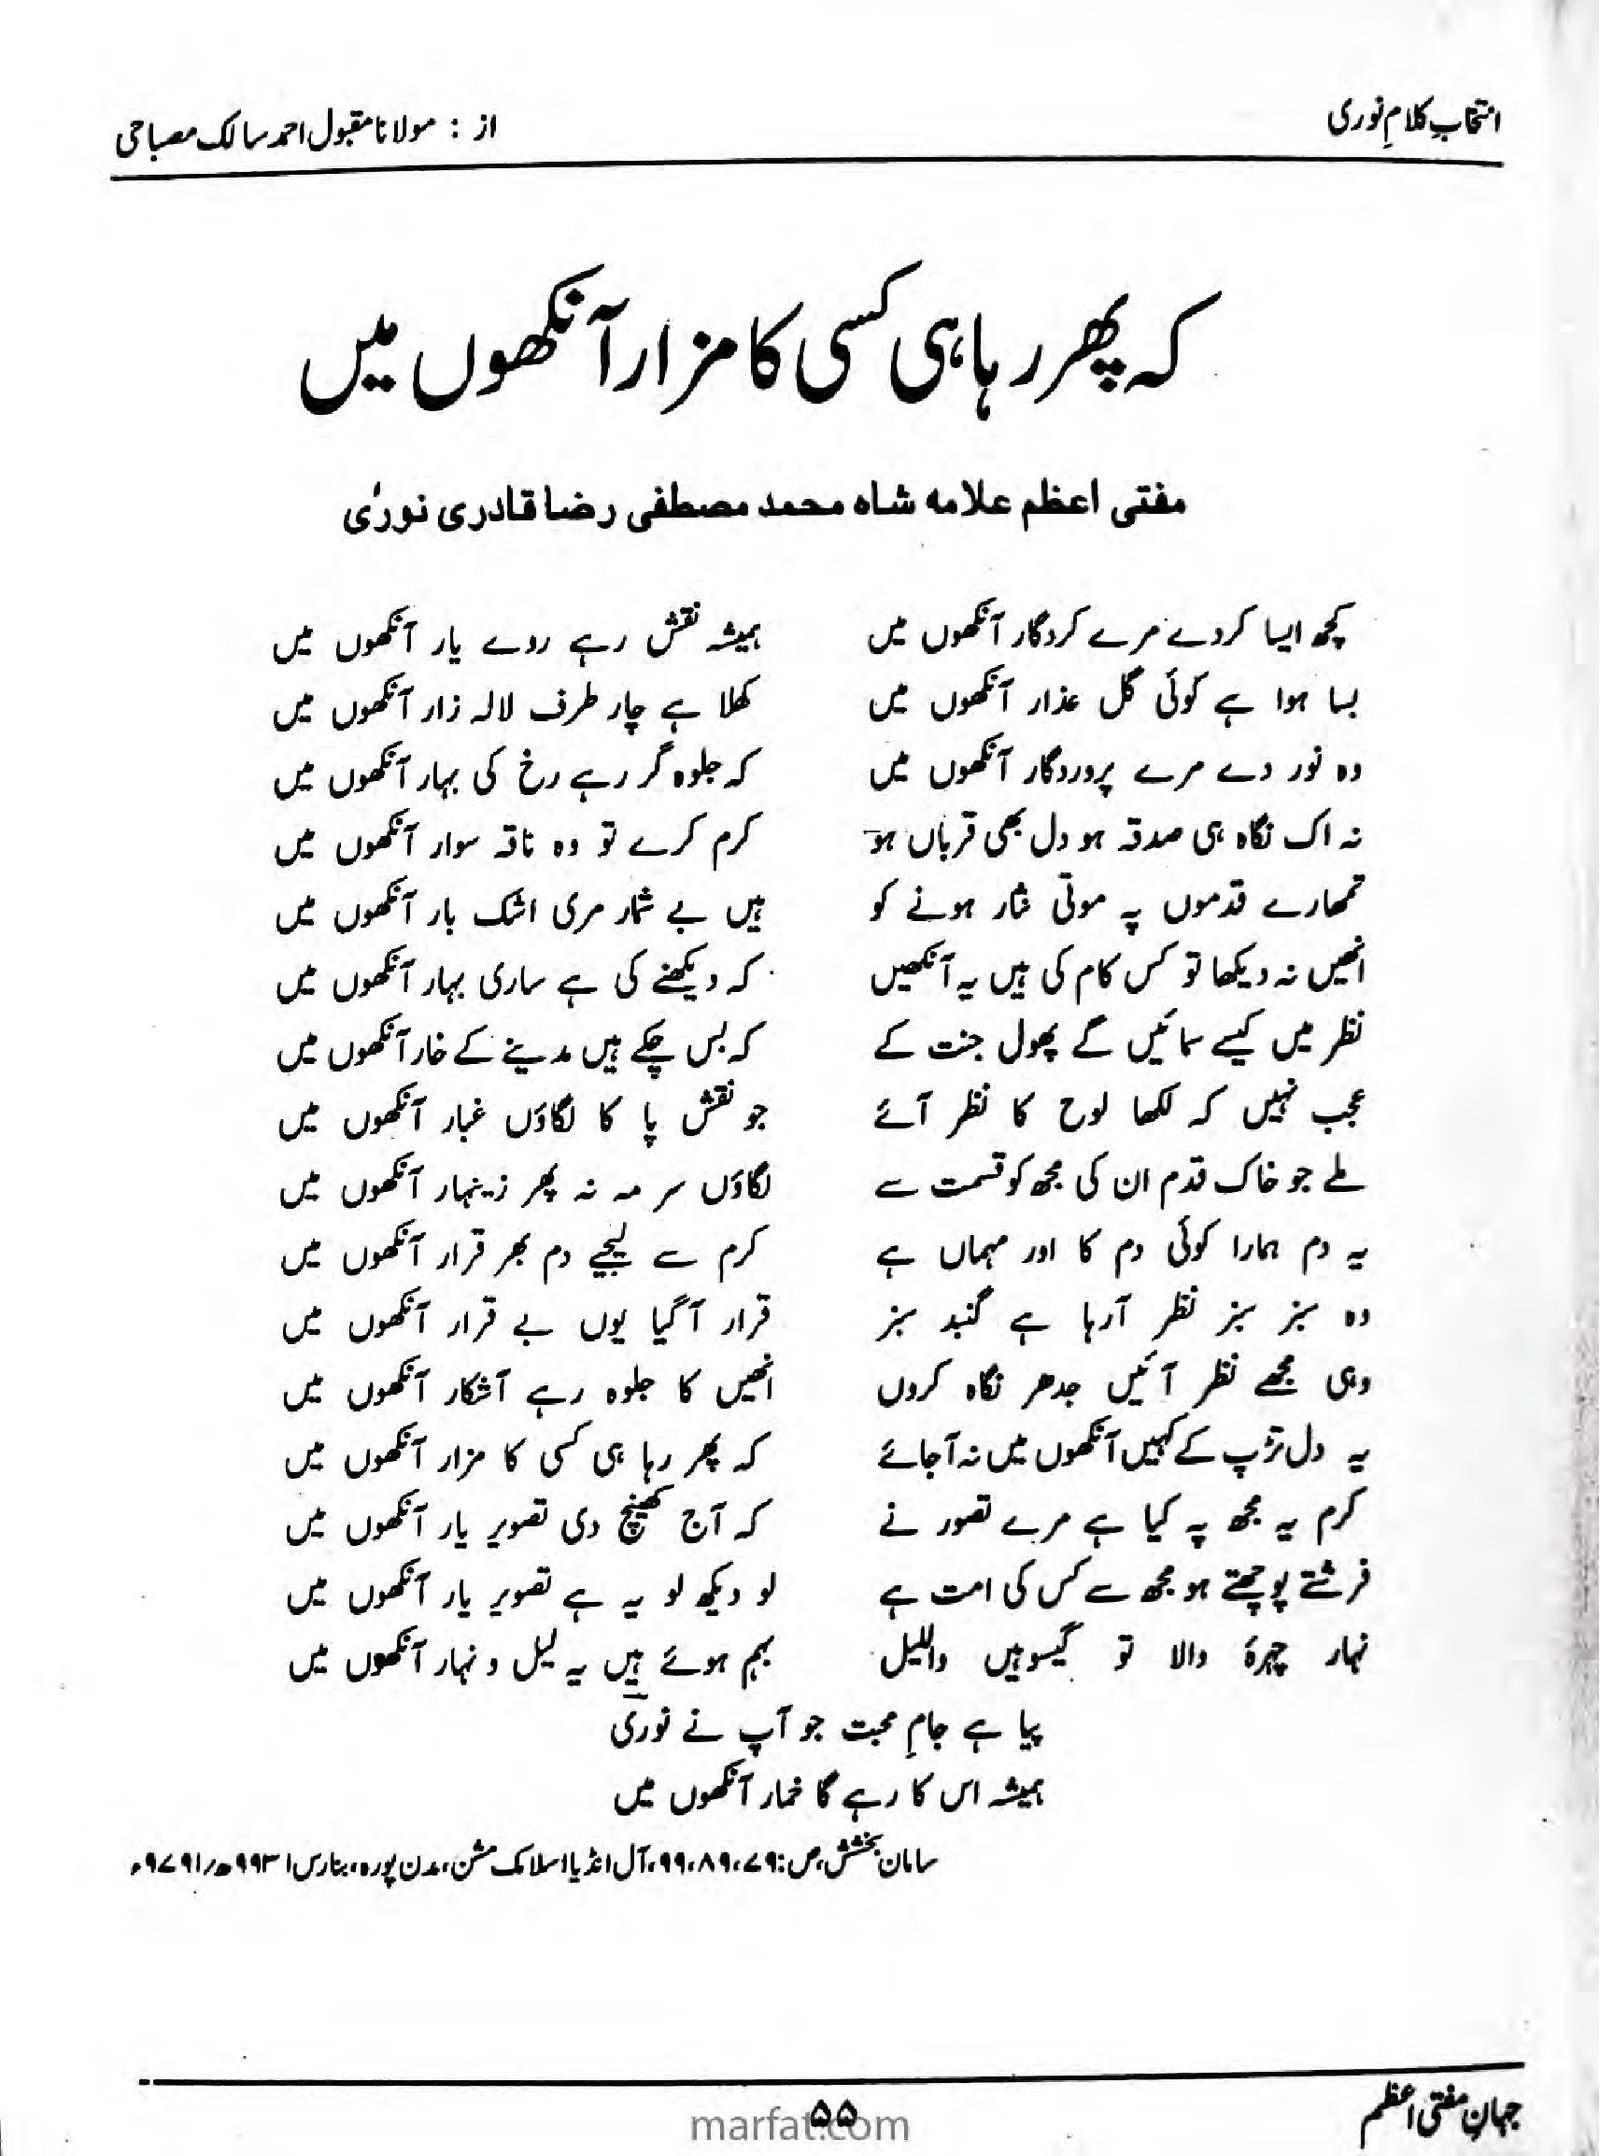 انتخابِ کلامِ نوری
از : مولانا مقبول احمد سالک مصباحی
کہ پھر رہا ہی کسی کا مزار آنکھوں میں
مفتی اعظم علامہ شاہ محمد مصطفی رضا قادری نوری
کچھ ایسا کردے مرے کردگار آنکھوں میں
ہمیشہ نقش رہے روے یار آنکھوں میں
بسا ہوا ہے کوئی گل عذار آنکھوں میں
کھلا ہے چار طرف لالہ زار آنکھوں میں
وہ نور دے مرے پروردگار آنکھوں میں
کہ جلوہ گر رہے رخ کی بہار آنکھوں میں
نہ اک نگاہ ہی صدقہ ہو دل بھی قرباں ہو
کرم کرے تو وہ ناقہ سوار آنکھوں میں
تمھارے قدموں پہ موتی نثار ہونے کو
ہیں بے شمار مری اشک بار آنکھوں میں
انھیں نہ دیکھا تو کس کام کی ہیں یہ آنکھیں
کہ دیکھنے کی ہے ساری بہار آنکھوں میں
نظر میں کیسے سمائیں گے پھول جنت کے
کہ بس چکے ہیں مدینے کے خار آنکھوں میں
عجب نہیں کہ لکھا لوح کا نظر آئے
جو نقش پا کا لگاؤں غبار آنکھوں میں
ملے جو خاک قدم ان کی مجھ کو قسمت سے
لگاؤں سرمہ نہ پھر زینہار آنکھوں میں
یہ دم ہمارا کوئی دم کا اور مہماں ہے
کرم سے لیجیے دم بھر قرار آنکھوں میں
وہ سبز سبز نظر آرہا ہے گنبد سبز
قرار آگیا یوں بے قرار آنکھوں میں
وہی مجھے نظر آئیں جدھر نگاہ کروں
انھیں کا جلوہ رہے آشکار آنکھوں میں
یہ دل تڑپ کے کہیں آنکھوں میں نہ آجائے
کہ پھر رہا ہی کسی کا مزار آنکھوں میں
کرم یہ مجھ پہ کیا ہے مرے تصور نے
کہ آج کھینچ دی تصویر یار آنکھوں میں
فرشتے پوچھتے ہو مجھ سے کس کی امت ہے
لو دیکھ لو یہ ہے تصویر یار آنکھوں میں
نہار چہرۂ والا تو گیسو ہیں واللیل
بہم ہوئے ہیں یہ لیل و نہار آنکھوں میں
پیا ہے جامِ محبت جو آپ نے نوری
ہمیشہ اس کا رہے گا خمار آنکھوں میں
سامان بخشش، ص: ۷۹، ۸۹، ۹۹، آل انڈیا اسلامک مشن، مدن پورہ، بنارس ۱۹۹۳ھ/۹۷۹۱ء
۵۵
marfat.com
جہانِ مفتی اعظم